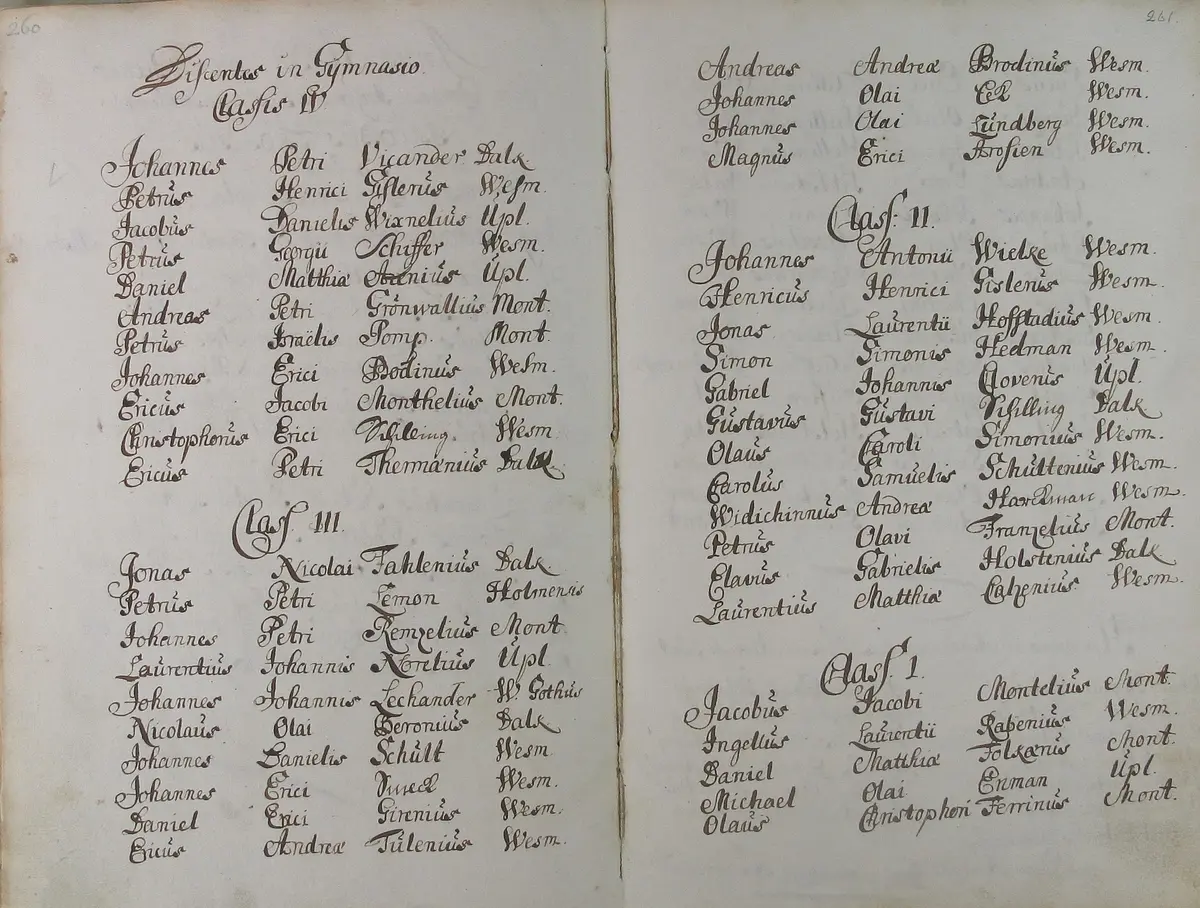 260
Discentes in Gymnasio
Classis IV
Johannes Petri Vicander Dalk.
Petrus Henrici Gislerus Wesm.
Jacobus Danielis Wixnelius Upl.
Petrus Georgii Schiffer Wesm.
Daniel Matthiæ Upl.
Andreas Petri Grönwallius Mont.
Petrus Israëlis Pomp. Mont.
Johannes Erici Bodinus Wesm.
Ericus Jacobi Monthelius Mont.
Christophorus Erici Schilling. Wesm.
Ericus Petri Thermænius Dalk.
Class. III.
Jonas Nicolai Fahlenius Dalk.
Petrus Petri Lemon Holmensis
Johannes Petri Remzelius Mont.
Laurentius Johannis Norelius Upl.
Johannes Johannis Lechander W. Gothus
Nicolaus Olai Geronius Dalk
Johannes Danielis Schult Wesm.
Johannes Erici Wesm.
Daniel Erici Girenius Wesm.
Ericus Andreæ Tulenius Wesm.
261.
Andreas Andreæ Brodinus Wesm.
Johannes Olai Eek Wesm.
Johannes Olai Lundberg Wesm.
Magnus Erici Arosien Wesm.
Class. II.
Johannes Antonii Wielke Wesm.
Henricus Henrici Gislerus Wesm.
Jonas Laurentii Hoffstadius Wesm.
Simon Simonis Hedman Wesm.
Gabriel Johannis Clovenus Upl.
Gustavus Gustavi Schilling Dalk
Olaus Caroli Simonius Wesm.
Carolus Samuelis Schultenius Wesm.
Widichinnus Andreæ Harckman Wesm.
Petrus Olavi Franzelius Mont.
Elavus Gabrielis Holstenius Dalk
Laurentius Matthiæ Calzenius Wesm.
Class. I.
Jacobus Jacobi Montelius Mont.
Ingellus Laurentii Rabenius Wesm.
Daniel Matthiæ Folkærnus Mont.
Michael Olai Enman Upl.
Olaus Christophori Ferrinus Mont.